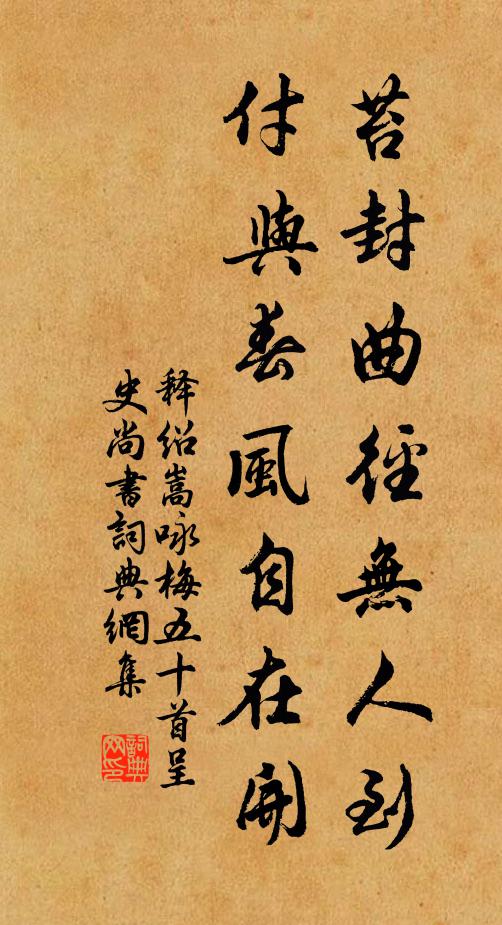 苔封曲徑無人到
付與春風自在開
释绍嵩咏梅五十首呈
史尚書詞典網集
詞典
网印